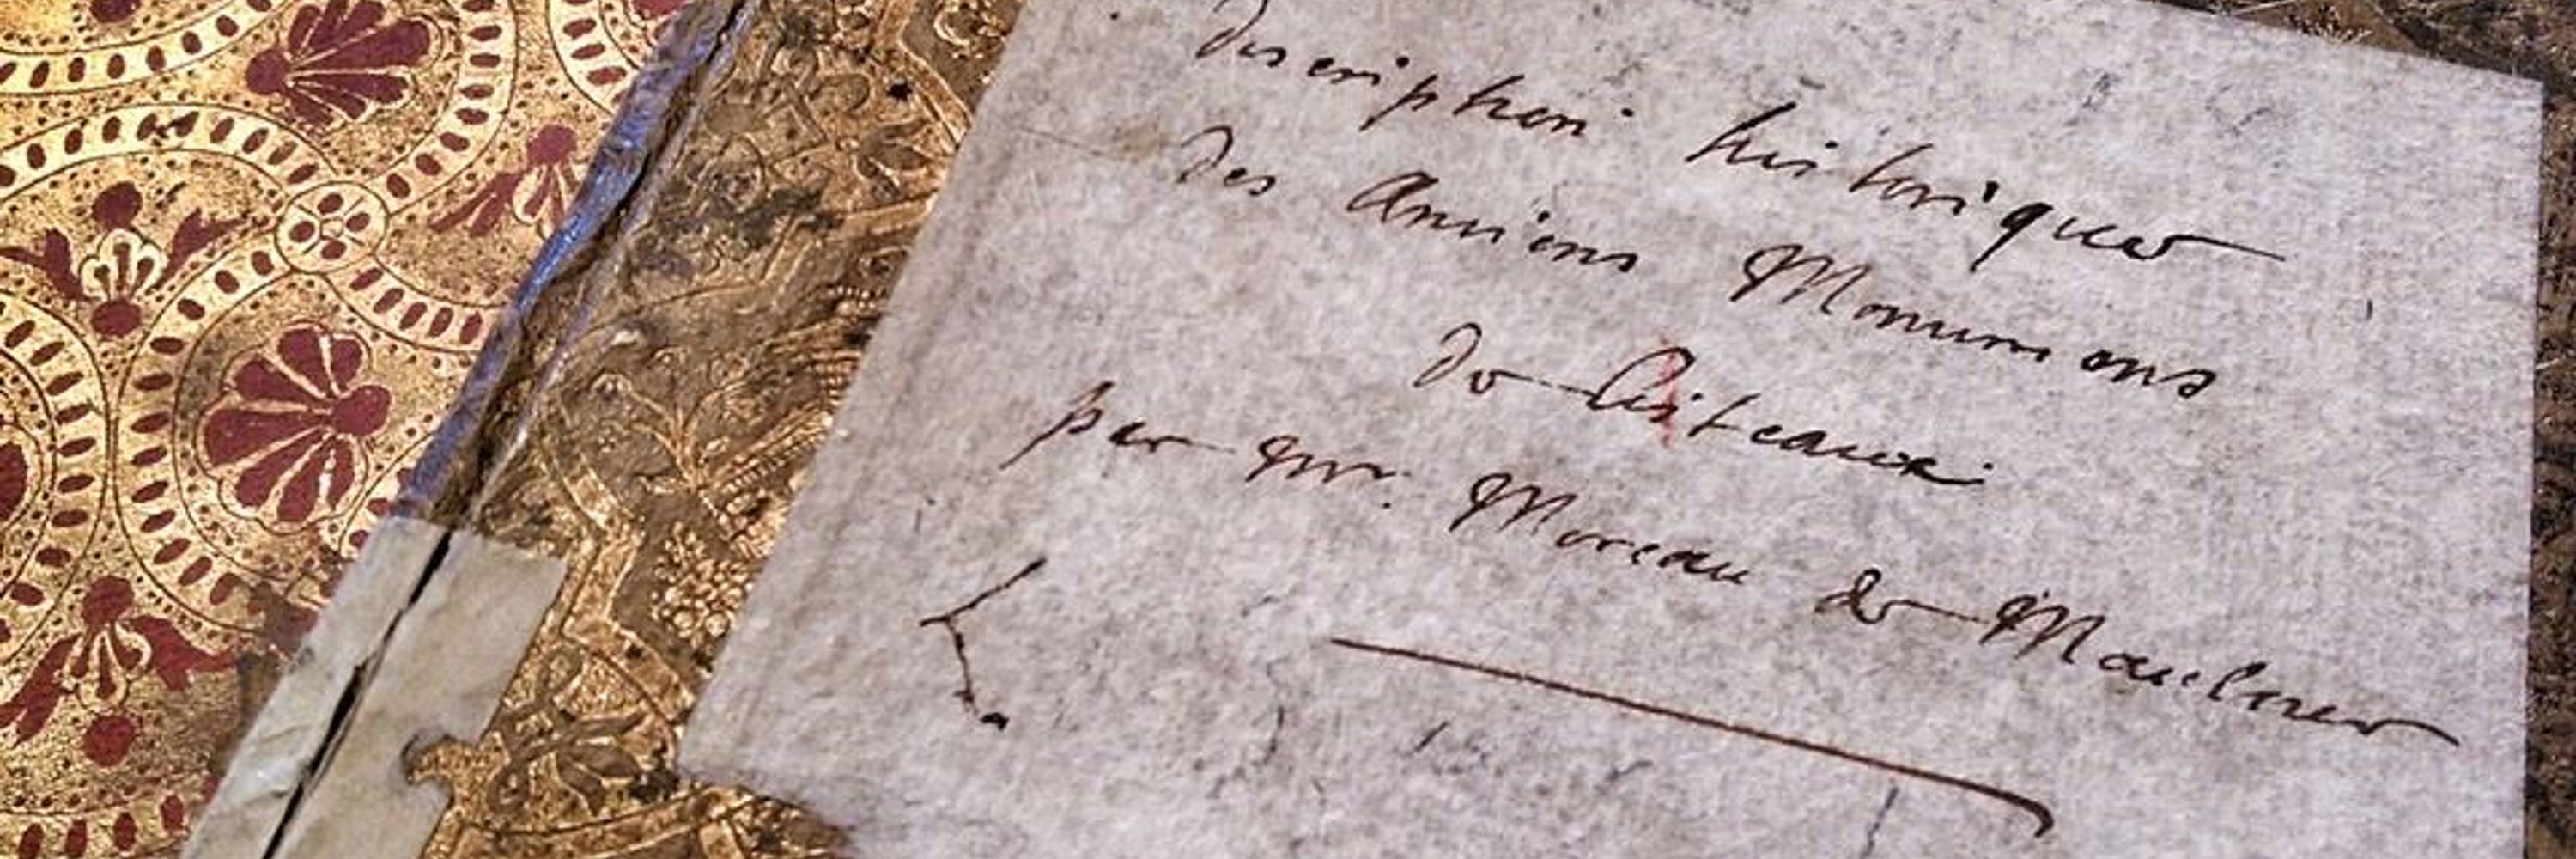 Description historique
des Anciens Monumens
de Citeaux
par Mr. Moreau de Mautour